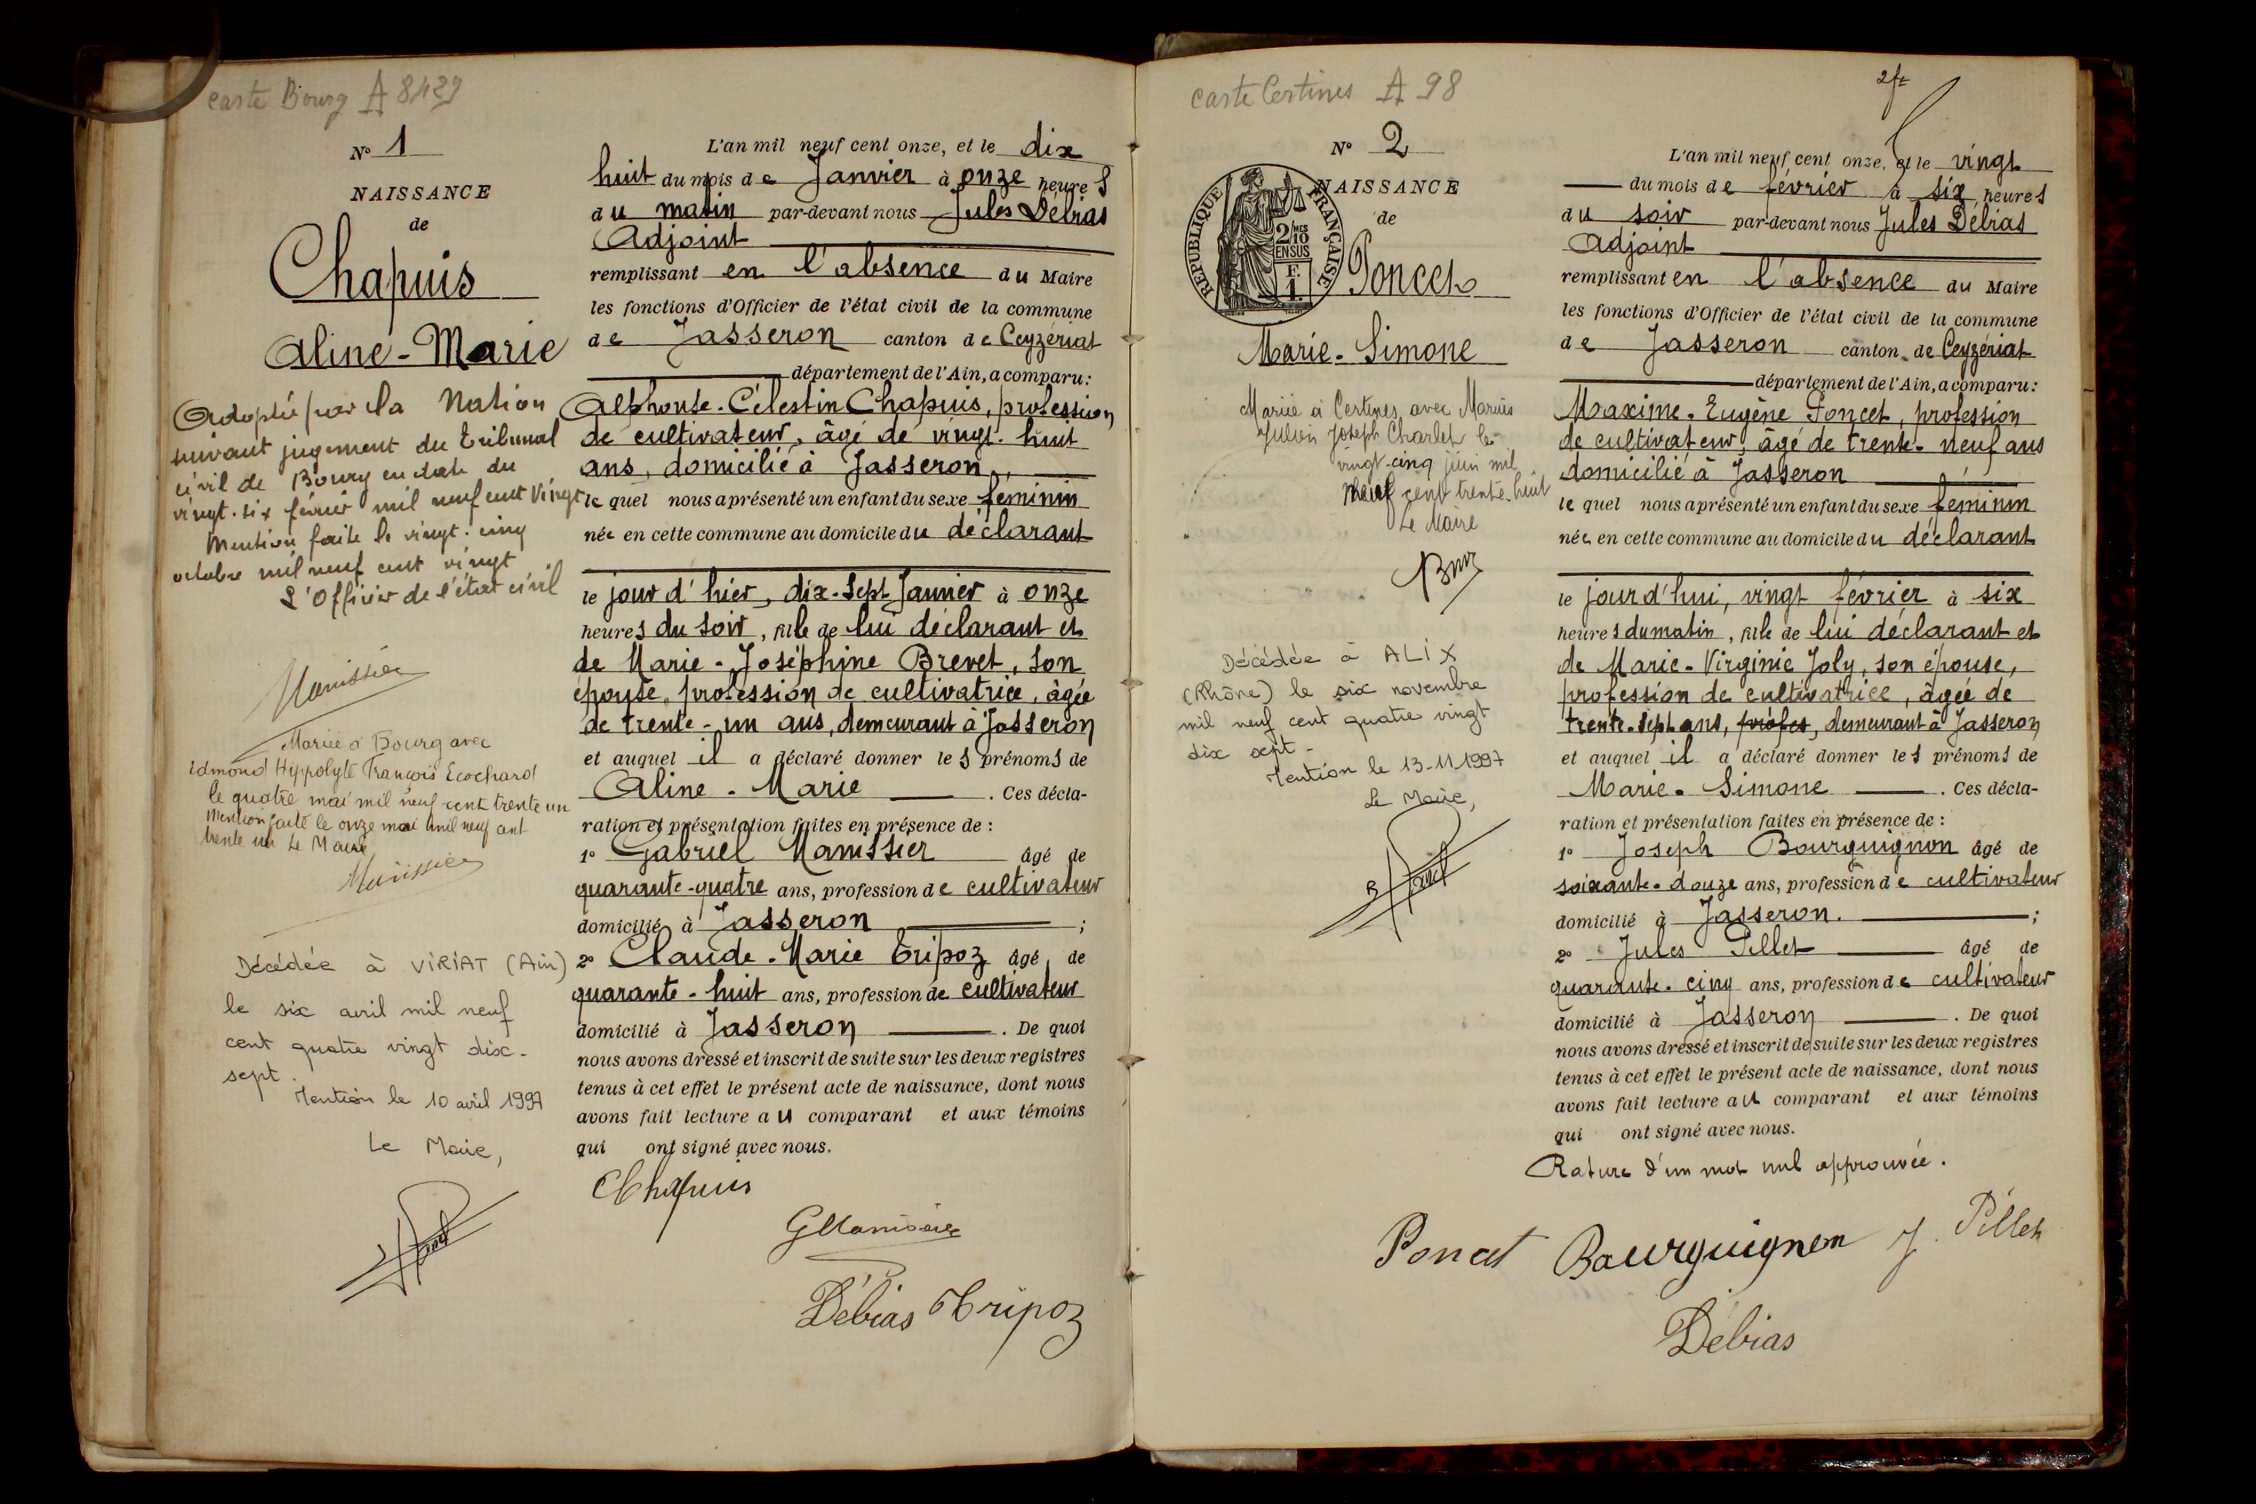 carte Bourg A 8429
N° 1
NAISSANCE
de
Chapuis
Aline-Marie
Adoptée par la Nation
suivant jugement du Tribunal
civil de Bourg en date du
vingt-six février mil neuf cent vingt
Mention faite le vingt-cinq
octobre mil neuf cent vingt
L'Officier de l'état civil
Manissier
Mariée à Bourg avec
Edmond Hyppolyte François Ecochard
le quatre mai mil neuf cent trente un
Mention faite le onze mai mil neuf cent
trente un Le Maire
Manissier
Décédée à VIRIAT (Ain)
le six avril mil neuf
cent quatre vingt dix-
sept.
Mention le 10 avril 1997
Le Maire,
L'an mil neuf cent onze, et le dix
huit du mois de Janvier à onze heures
du matin par-devant nous Jules Débias
Adjoint
remplissant en l'absence du Maire
les fonctions d'Officier de l'état civil de la commune
de Jasseron canton de Ceyzériat
département de l'Ain, a comparu:
Alphonse-Célestin Chapuis, profession
de cultivateur, âgé de vingt-huit
ans, domicilié à Jasseron,
lequel nous a présenté un enfant du sexe féminin
née en cette commune au domicile du déclarant
le jour d'hier, dix-sept Janvier à onze
heures du soir, fille de lui déclarant et
de Marie-Joséphine Brevet, son
épouse, profession de cultivatrice, âgée
de trente-un ans, demeurant à Jasseron
et auquel il a déclaré donner les prénoms de
Aline-Marie . Ces décla-
ration et présentation faites en présence de :
1° Gabriel Manissier âgé de
quarante-quatre ans, profession de cultivateur
domicilié à Jasseron ;
2° Claude-Marie Tripoz âgé de
quarante-huit ans, profession de cultivateur
domicilié à Jasseron . De quoi
nous avons dressé et inscrit de suite sur les deux registres
tenus à cet effet le présent acte de naissance, dont nous
avons fait lecture au comparant et aux témoins
qui ont signé avec nous.
Chapuis
G Manissier
Débias Tripoz
carte Certines A 98
N° 2
NAISSANCE
de
RÉPUBLIQUE FRANÇAISE
2/10 MES
EN SUS
F.
1.
Poncet
Marie-Simone
Mariée à Certines avec Marius
Julien Joseph Charlet le
vingt-cinq juin mil
neuf cent trente-huit
Le Maire
Décédée à ALIX
(Rhône) le six novembre
mil neuf cent quatre vingt
dix sept -
Mention le 13-11-1997
Le Maire,
L'an mil neuf cent onze, et le vingt
du mois de février à six heures
du soir par-devant nous Jules Débias
Adjoint
remplissant en l'absence du Maire
les fonctions d'Officier de l'état civil de la commune
de Jasseron canton de Ceyzériat
département de l'Ain, a comparu:
Maxime-Eugène Poncet, profession
de cultivateur, âgé de trente-neuf ans
domicilié à Jasseron
lequel nous a présenté un enfant du sexe féminin
née en cette commune au domicile du déclarant
le jourd'hui, vingt février à six
heures du matin, fille de lui déclarant et
de Marie-Virginie Joly, son épouse,
profession de cultivatrice, âgée de
trente-sept ans, profes, demeurant à Jasseron
et auquel il a déclaré donner les prénoms de
Marie-Simone . Ces décla-
ration et présentation faites en présence de :
1° Joseph Bourguignon âgé de
soixante-douze ans, profession de cultivateur
domicilié à Jasseron. ;
2° Jules Pillet âgé de
quarante-cinq ans, profession de cultivateur
domicilié à Jasseron . De quoi
nous avons dressé et inscrit de suite sur les deux registres
tenus à cet effet le présent acte de naissance, dont nous
avons fait lecture au comparant et aux témoins
qui ont signé avec nous.
Rature d'un mot nul approuvée.
Poncet Bourguignon J. Pillet
Débias